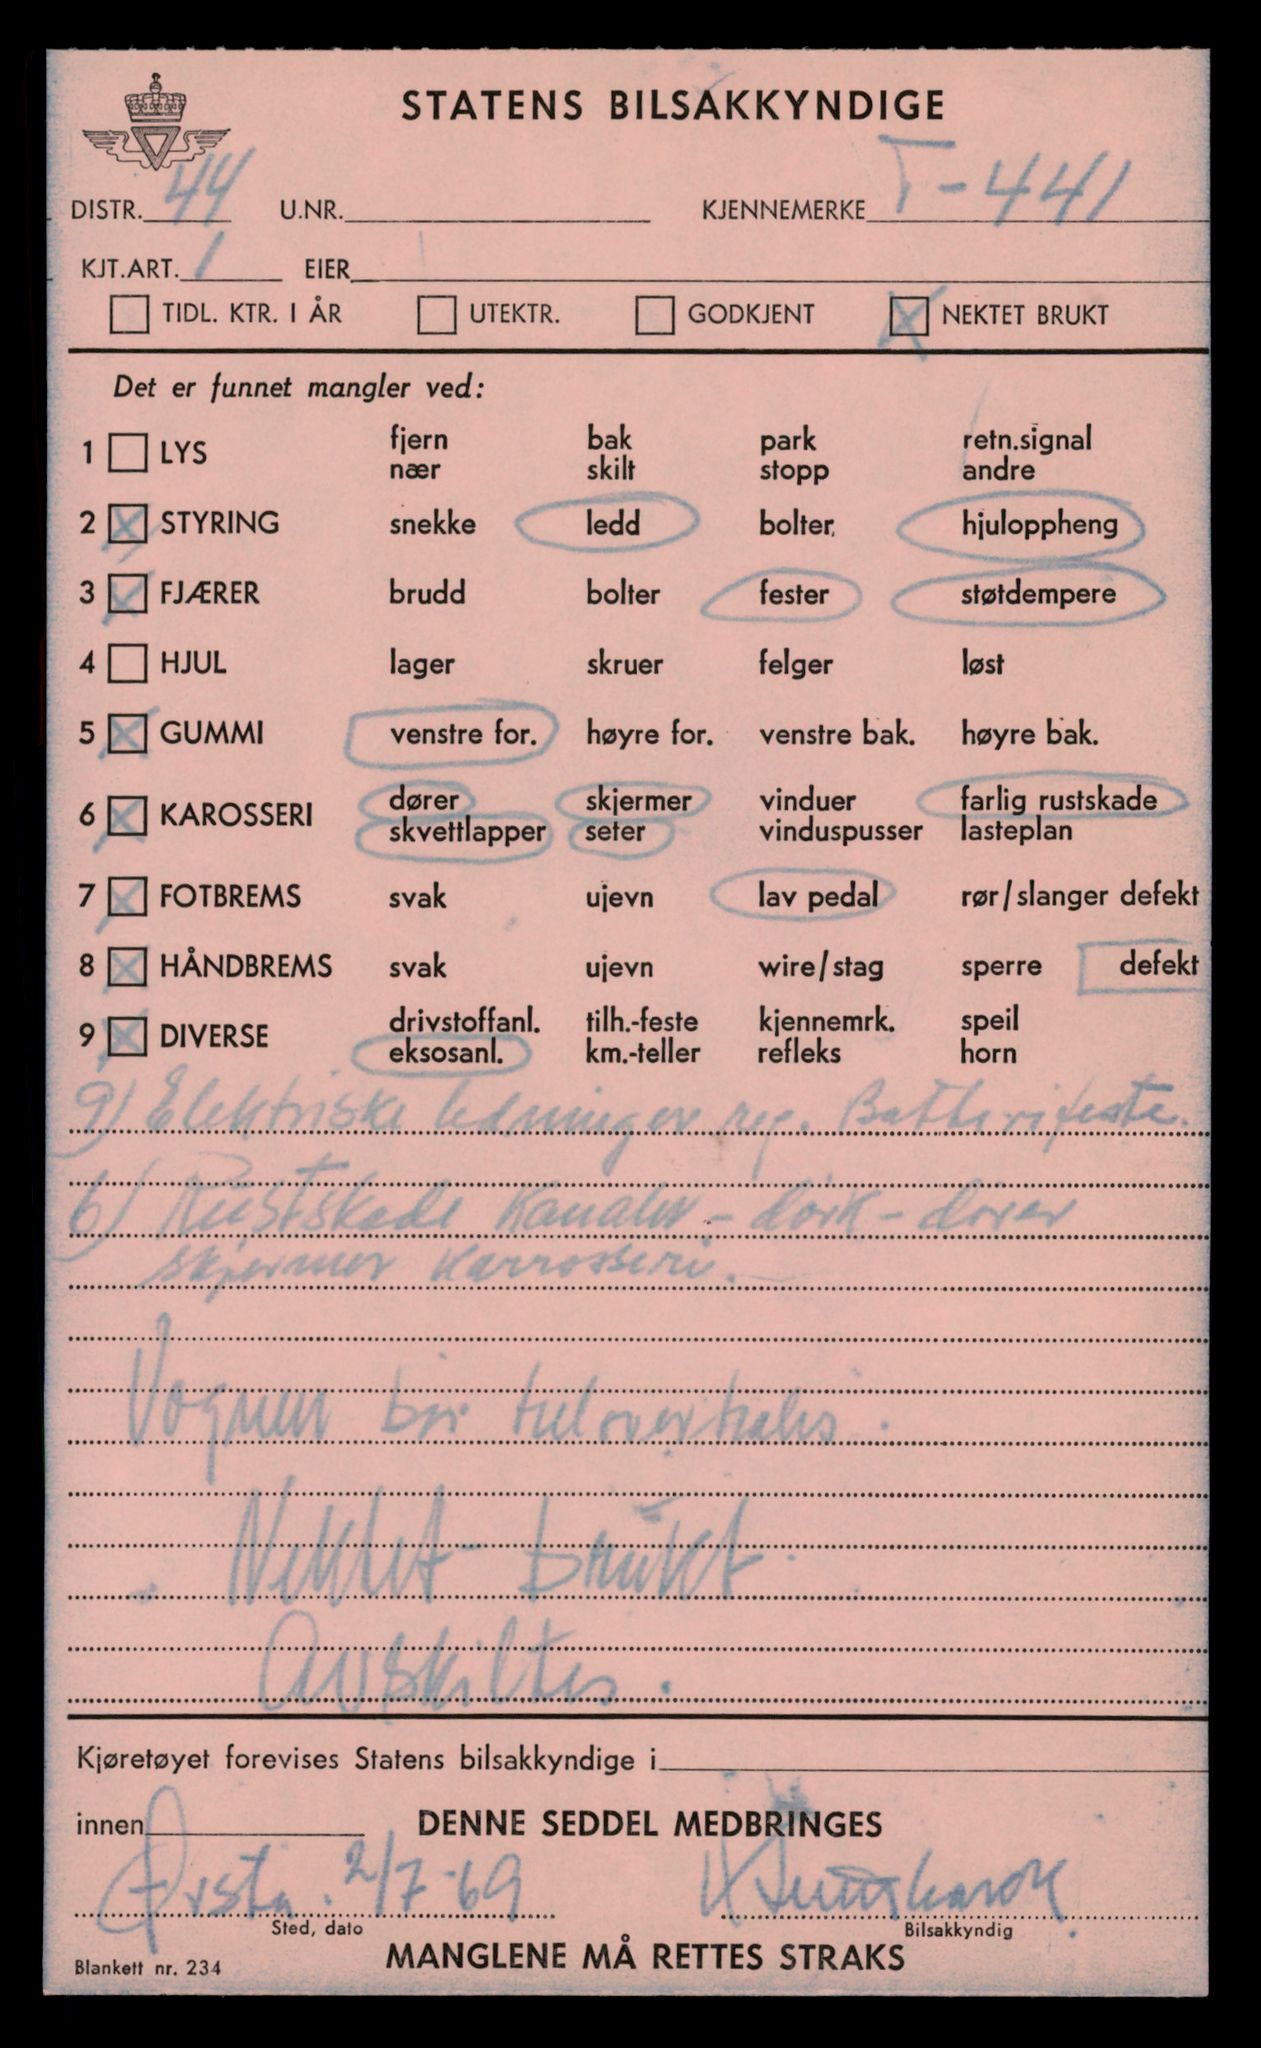 STATENS BILSAKKYNDIGE
DISTR. 44 U.NR. KJENNEMERKE T-441
KJT.ART. 1 EIER
TIDL. KTR. I ÅR UTEKTR. GODKJENT NEKTET BRUKT
Det er funnet mangler ved:
1 LYS fjern bak park retn.signal
nær skilt stopp andre
2 STYRING snekke ledd bolter hjuloppheng
3 FJÆRER brudd bolter fester støtdempere
4 HJUL lager skruer felger løst
5 GUMMI venstre for. høyre for. venstre bak. høyre bak.
6 KAROSSERI dører skjermer vinduer farlig rustskade
skvettlapper seter vinduspusser lasteplan
7 FOTBREMS svak ujevn lav pedal rør/slanger defekt
8 HÅNDBREMS svak ujevn wire/stag sperre defekt
9 DIVERSE drivstoffanl. tilh.-feste kjennemrk. speil
eksosanl. km.-teller refleks horn
9) Elektriske ledninger rep. Batterifeste.
6) Rustskade Kanaler - dørk - dører
skjermer Karrosseri.
Vognen bør heloverhales.
Nektet brukt.
Avskiltes.
Kjøretøyet forevises Statens bilsakkyndige i
innen DENNE SEDDEL MEDBRINGES
Ørsta. 2/7-69
Sted, dato Bilsakkyndig
Blankett nr. 234 MANGLENE MÅ RETTES STRAKS